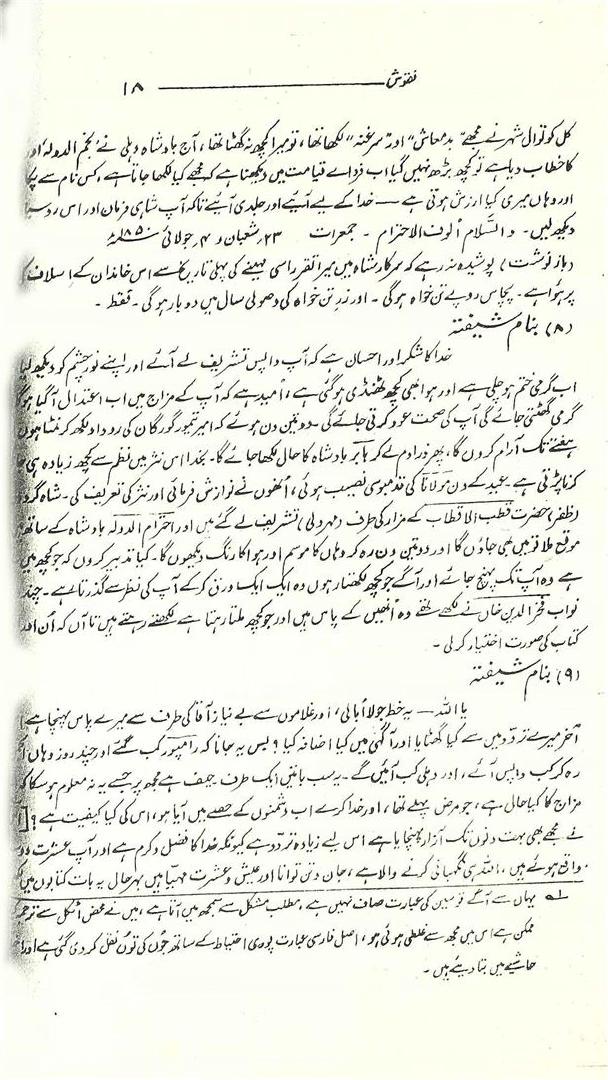 نقوش ۱۸
کل کو توال شہر نے مجھے "بدمعاش" اور "سرغنہ" لکھا تھا، تو میرا کچھ نہ گھٹا تھا، آج بادشاہ دہلی نے نجم الدولہ اور
کا خطاب دیا ہے تو کچھ بڑھ نہیں گیا اب فردائے قیامت میں دیکھنا ہے کہ مجھے کیا لکھا جاتا ہے، کس نام سے
اور وہاں میری کیا ارزش ہوتی ہے — خدا کے لیے آیئے اور جلدی آیئے تاکہ آپ شاہی فرمان اور اس
دیکھ لیں۔ والسّلام اُلوف الاحترام۔ جمعرات ۲۳ر شعبان و ۴ر جولائی ۱۸۵۰ء
(باز نوشت) پوشیدہ نہ رہے کہ سرکار شاہ میں میرا تقرر اسی مہینے کی پہلی تاریخ سے اس خاندان کے اسلاف
پر ہوا ہے۔ پچاس روپے تن خواہ ہوگی۔ اور زرِ تن خواہ کی وصولی سال میں دو بار ہوگی۔ فقط۔
(۸) بنام شیفتہ
خدا کا شکر اور احسان ہے کہ آپ واپس تشریف لے آئے اور اپنے نورِ چشم کو دیکھ لیا
اب گرمی ختم ہو چلی ہے اور ہوا بھی کچھ ٹھنڈی ہو گئی ہے، اُمید ہے کہ آپ کے مزاج میں اب اعتدال آ گیا ہو
گرمی گھٹتی جائے گی آپ کی صحت عود کرتی جائے گی۔ دو تین دن ہوئے کہ امیر تیمور گورگان کی روداد لکھ کر نمٹا ہوں
ہفتے تک آرام کروں گا، پھر ذرا دم لے کر بابر بادشاہ کا حال لکھا جائے گا۔ بخدا اس نثر میں نظم سے کچھ زیادہ ہی
کرنا پڑتی ہے۔ عید کے دن مولانا کی قدمبوسی نصیب ہوئی، اُنھوں نے نوازش فرمائی اور نثر کی تعریف کی۔ شاہ گردوں
(ظفر) حضرت قطب الاقطاب کے مزار کی طرف (مہرولی) تشریف لے گئے ہیں اور احترام الدولہ بادشاہ کے ساتھ
موقع ملا تو میں بھی جاؤں گا اور دو تین دن رہ کر وہاں کا موسم اور ہوا کا رنگ دیکھوں گا۔ کیا تدبیر کروں کہ جو کچھ میں
ہے وہ آپ تک پہنچ جائے اور آگے جو کچھ لکھتا رہوں وہ ایک ایک ورق کر کے آپ کی نظر سے گذرتا رہے۔ چند
نواب فخر الدین خاں نے لکھے تھے وہ اُنھیں کے پاس ہیں اور جو کچھ ملتا رہتا ہے لکھتے رہتے ہیں تا آں کہ اُن
کتاب کی صورت اختیار کر لی۔
(۹) بنام شیفتہ
یا اللہ — یہ خط جو لا اُبالی، اور غلاموں سے بے نیاز آقا کی طرف سے میرے پاس پہنچا ہے
آخر میرے تردّد میں سے کیا گھٹایا اور آگہی میں کیا اضافہ کیا؟ بس یہ جانا کہ رامپور کب گئے اور چند روز وہاں
رہ کر کب واپس آئے، اور دہلی کب آئیں گے۔ یہ سب باتیں ایک طرف حیف ہے مجھ پر جسے یہ نہ معلوم ہو سکا کہ
مزاج کا کیا حال ہے، جو مرض پہلے تھا، اور خدا کرے اب دشمنوں کے حصے میں آیا ہو، اس کی کیا کیفیت ہے؟
نے مجھے بھی بہت دنوں تک آزار پہنچایا ہے اس لیے زیادہ تردّد ہے کیونکہ خدا کا فضل و کرم ہے اور آپ عشرت
واقع ہوئے ہیں، اللہ ہی نگہبانی کرنے والا ہے، جان و تن توانا اور عیش و عشرت مہیّا ہیں بہرحال یہ بات کتابوں میں
لہ یہاں سے آگے قوسین کی عبارت صاف نہیں ہے، مطلب مشکل سے سمجھ میں آتا ہے، میں نے محض اٹکل سے
ممکن ہے اس میں مجھ سے غلطی ہوئی ہو، اصل فارسی عبارت پوری احتیاط کے ساتھ جُوں کی توں نقل کر دی گئی ہے اور
حاشیے میں بتا دیئے ہیں۔